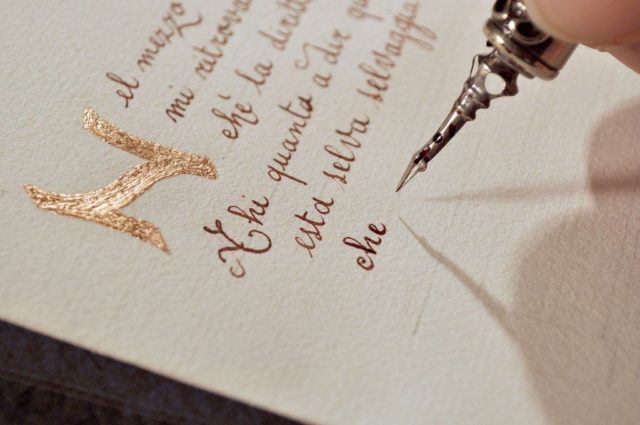 Nel mezzo
mi ritrova
chè la diritt
Ahi quanto a dir qu
esta selva selvaggia
che